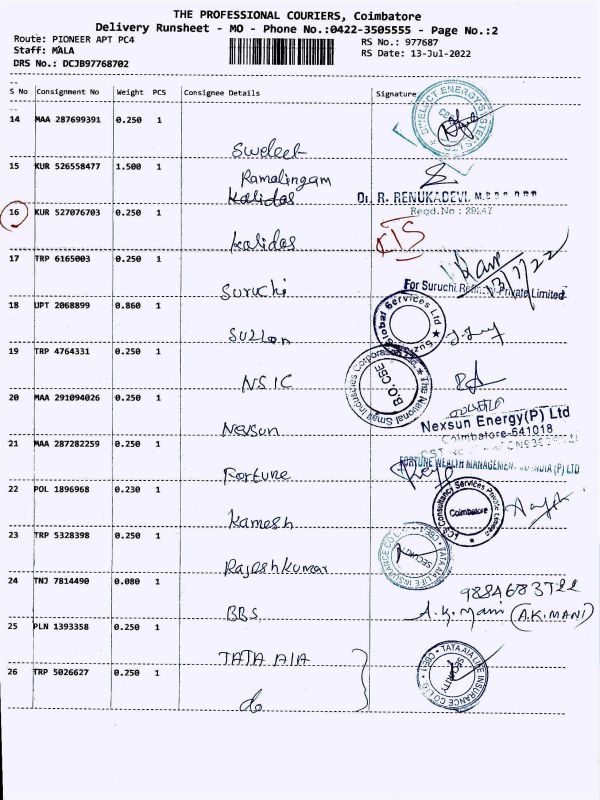 THE PROFESSIONAL COURIERS, Coimbatore
Delivery Runsheet - MO - Phone No.:0422-3505555 - Page No.:2
Route: PIONEER APT PC4
RS No.: 977687
Staff: MALA
RS Date: 13-Jul-2022
DRS No.: DCJB97768702
S No Consignment No Weight PCS Consignee Details Signature
14 MAA 287699391 0.250 1
Swelect
15 KUR 526558477 1.500 1
Ramalingam
Kalidas
Dr. R. RENUKADEVI, M.B.B.S
Regd.No : 29247
16 KUR 527076703 0.250 1
Kalidas
17 TRP 6165003 0.250 1
13/7/22
Suruchi
For Suruchi Private Limited
18 UPT 2068899 0.860 1
Global Services Ltd
Suzlon
19 TRP 4764331 0.250 1
NSIC
The National Small Industries Corporation Ltd.
B.O. CBE
20 MAA 291094026 0.250 1
Nexsun
Nexsun Energy(P) Ltd
Coimbatore-641018
21 MAA 287282259 0.250 1
Fortune
FORTUNE WEALTH MANAGEMEN INDIA (P) LTD
22 POL 1896968 0.230 1
Kamesh
Consultancy Services Private Limited
Coimbatore
23 TRP 5328398 0.250 1
Rajeshkumar
TATA AIA LIFE INSURANCE CO LTD
SECURITY
24 TNJ 7814490 0.080 1
BBS
A.K.Mani (A.K.MANI)
25 PLN 1393358 0.250 1
TATA AIA
TATA AIA LIFE INSURANCE CO LTD
SECURITY
26 TRP 5026627 0.250 1
do